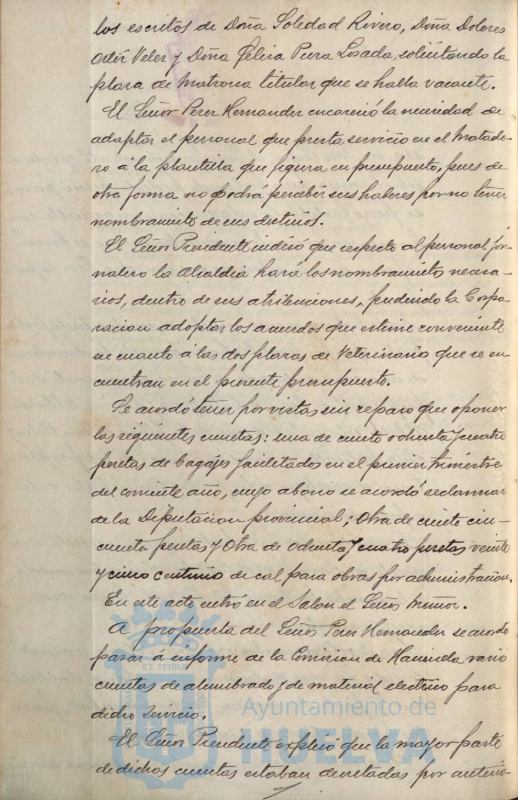 los escritos de Doña Soledad Rivero, Doña Dolores
Ortíz Velez y Doña Felisa Parra Losada, solicitando la
plaza de Matrona titular que se halla vacante.
El Señor Perez Hernandez encareció la necesidad de
adaptar el personal que presta servicio en el Matade-
ro á la plantilla que figura en presupuesto, pues de
otra forma no podrá percibir sus haberes por no tener
nombramiento de sus destinos.
El Señor Presidente indicó que respecto al personal jor-
nalero la Alcaldía hará los nombramientos necesa-
rios, dentro de sus atribuciones, pudiendo la Corpo-
racion adoptar los acuerdos que estime conveniente
en cuanto á las dos plazas de Veterinario que se en-
cuentran en el presente presupuesto.
Se acordó tener por vistas sin reparo que oponer
las siguientes cuentas: una de ciento ochenta y cuatro
pesetas de bagajes facilitados en el primer trimestre
del corriente año, cuyo abono se acordó reclamar
de la Diputacion provincial; otra de ciento cin-
cuenta pesetas y otra de ochenta y cuatro pesetas veinte
y cinco centimos de cal para obras por administracion.
En este acto entró en el Salon el Señor Muñoz.
A propuesta del Señor Perez Hernandez se acordó
pasar á informe de la Comision de Hacienda varias
cuentas de alumbrado y de material electrico para
dicho servicio.
El Señor Presidente explicó que la mayor parte
de dichas cuentas estaban decretadas por anterio-
ET TERRA
Ayuntamiento de
HUELVA